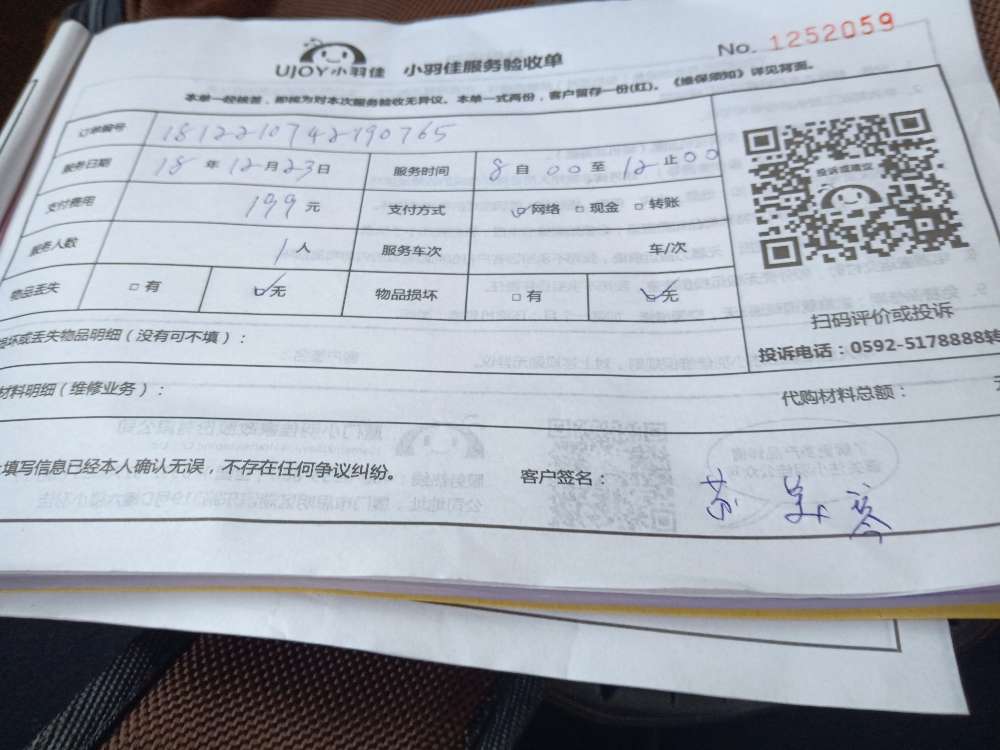 UJOY小羽佳 小羽佳服务验收单 No. 1252059
本单一经核签，即视为对本次服务验收无异议。本单一式两份，客户留存一份(红)。《维保须知》详见背面。
订单编号 181221074290765
服务日期 18 年 12 月 23 日 服务时间 8 自 00 至 12 止 00
支付费用 199 元 支付方式 ☑ 网络 □ 现金 □ 转账
服务人数 1 人 服务车次 车/次
物品丢失 □ 有 ☑ 无 物品损坏 □ 有 ☑ 无
投诉或建议
扫码评价或投诉
投诉电话：0592-5178888转
损坏或丢失物品明细（没有可不填）：
材料明细（维修业务）： 代购材料总额：
填写信息已经本人确认无误，不存在任何争议纠纷。 客户签名：